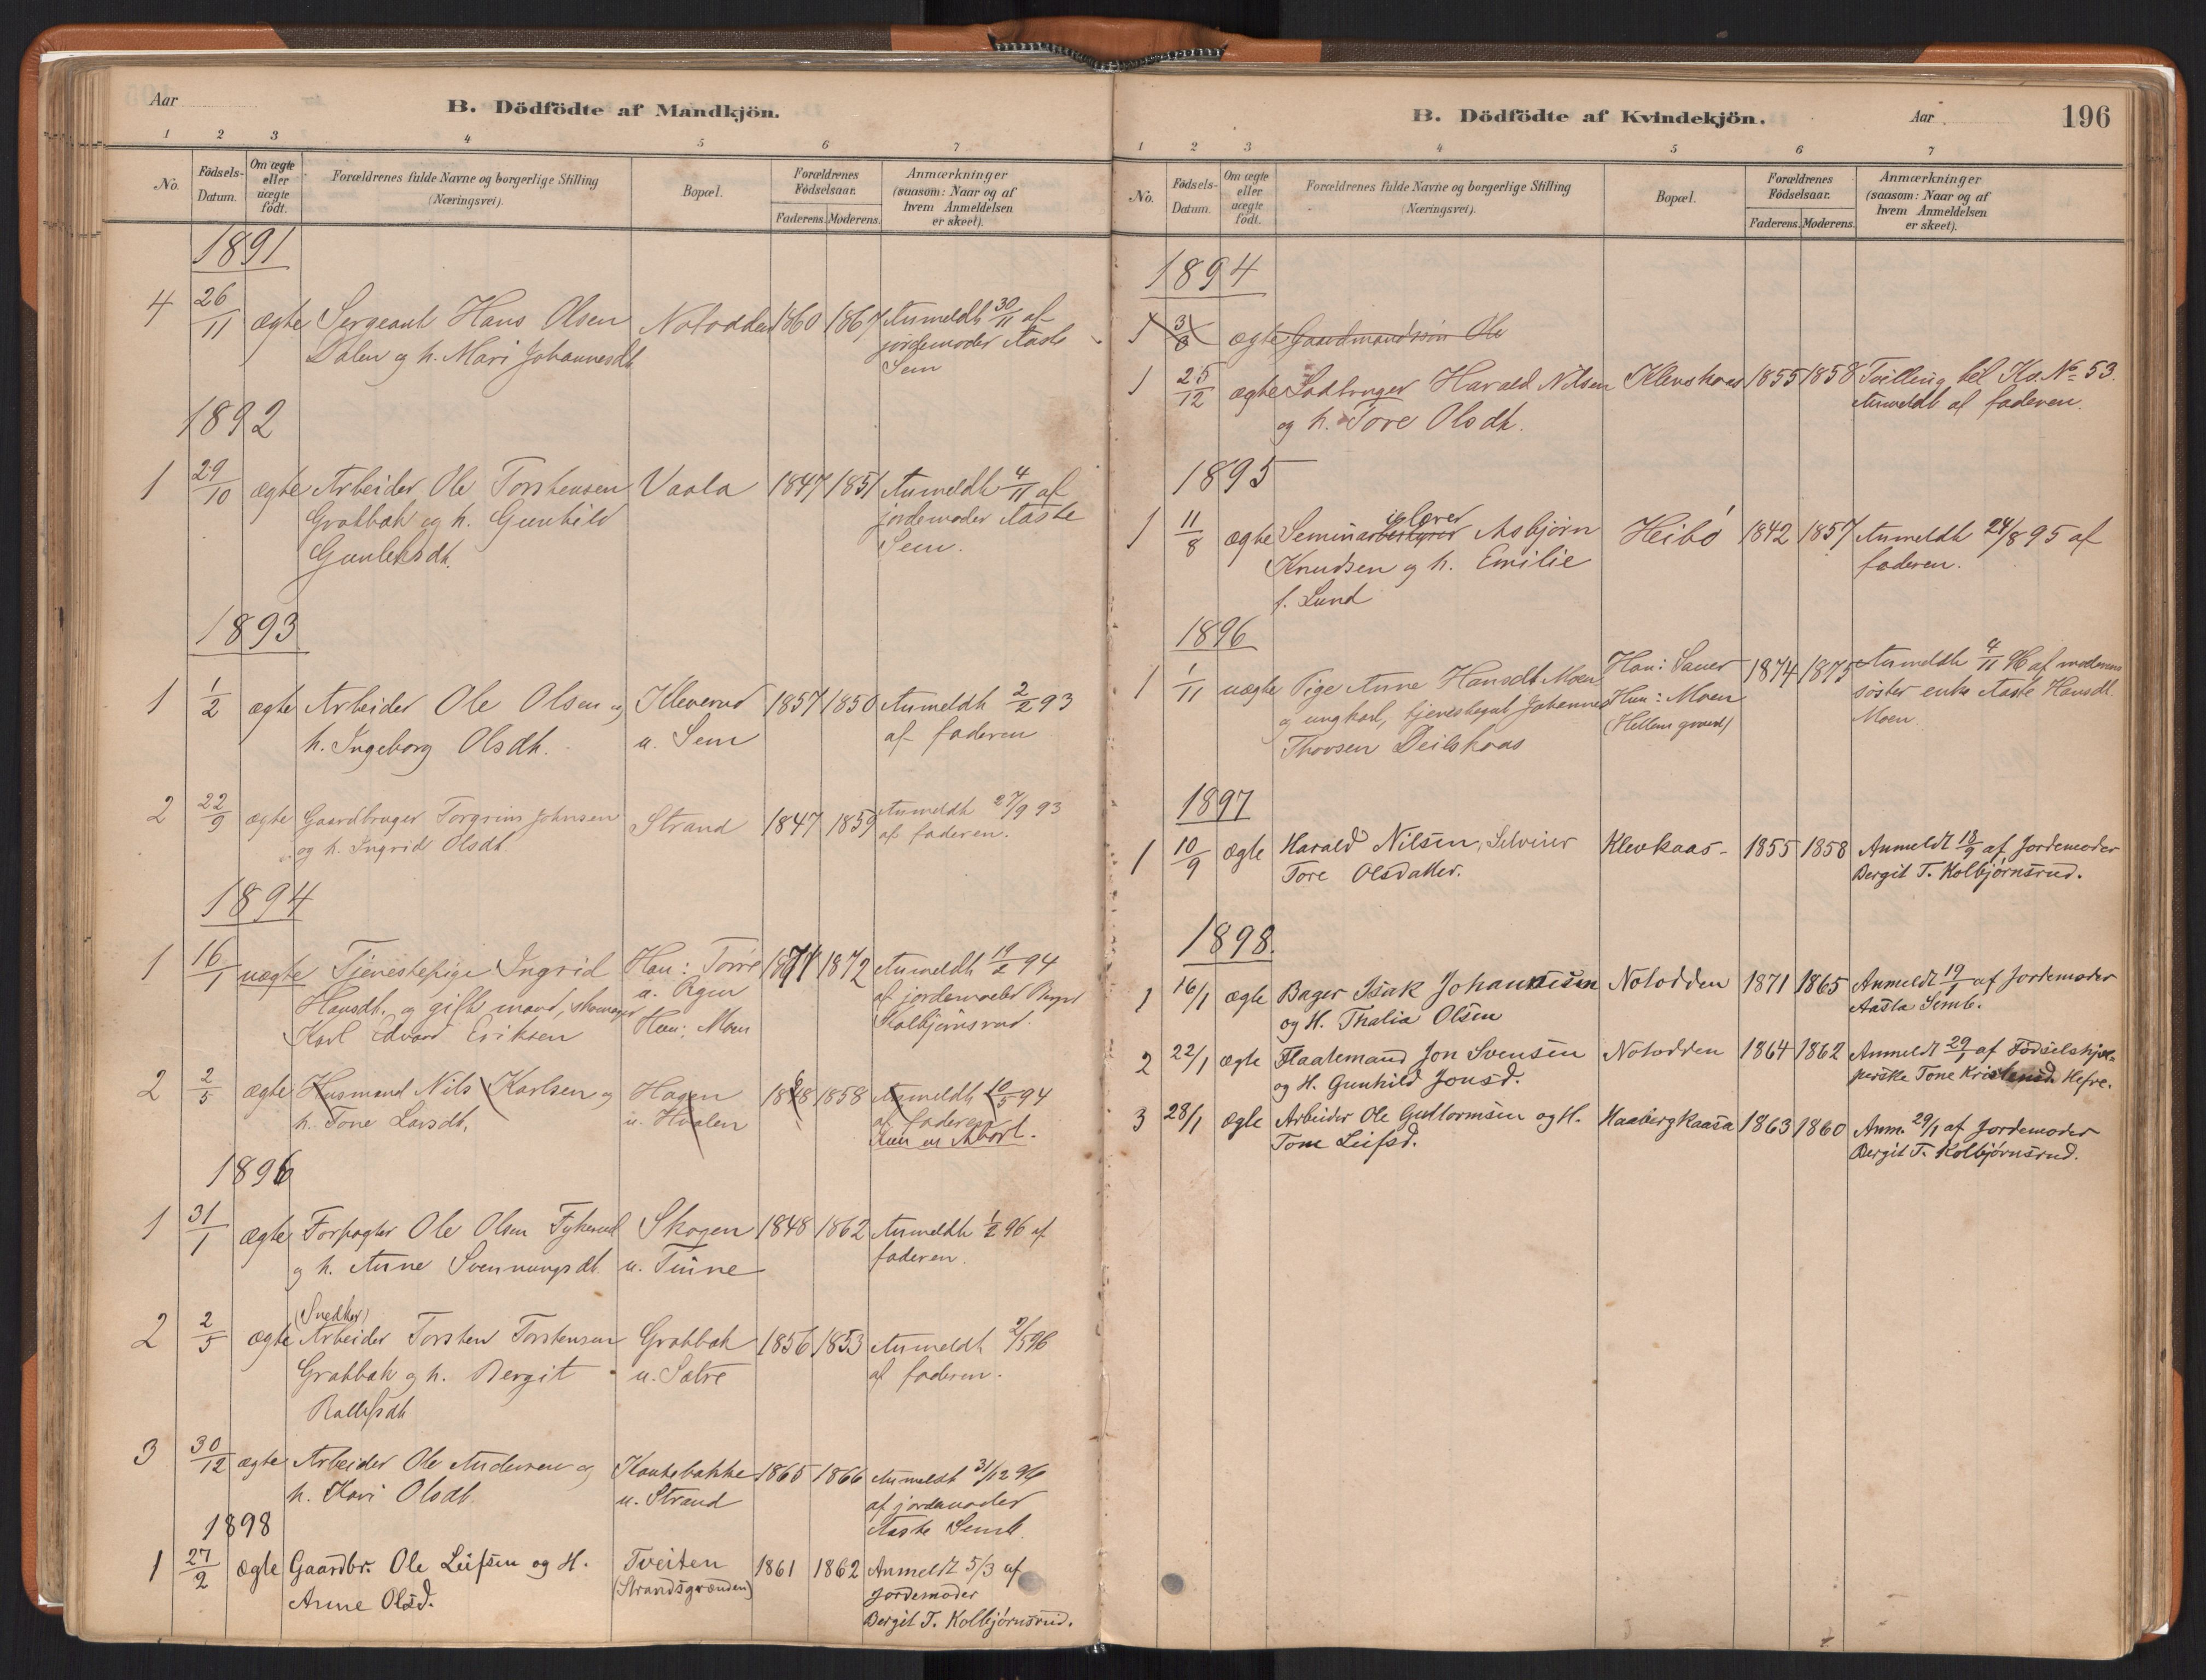 Aar
B. Dödfödte af Mandkjön.
1 2 3 4 5 6 7
No.
Födsels-Datum.
Om ægte eller uægte födt.
Forældrenes fulde Navne og borgerlige Stilling (Næringsvei).
Bopæl.
Forældrenes Födselsaar.
Faderens. Moderens.
Anmærkninger (saasom: Naar og af hvem Anmeldelsen er skeet).
1891
4 26/11 ægte Sergeant Hans Olsen Notodden 1860 1867 Anmeldt 30/11 af
Dalen og h. Mari Johannesdt. jordemoder Aaste
Sem
1892
1 29/10 ægte Arbeider Ole Torstensen Vaala 1847 1851 Anmeldt 4/11 af
Gratbak og h. Gunhild jordemoder Aaste
Gunleksdt. Sem.
1893
1 1/2 ægte Arbeider Ole Olsen og Kleverud 1857 1850 Anmeldt 2/2 93
h. Ingeborg Olsdt. u. Sem af faderen
2 22/9 ægte Gaardbruger Torgrim Johnsen Strand 1847 1859 Anmeldt 27/9 93
og h. Ingrid Olsdt. af faderen.
1894
1 16/1 uægte Tjenestepige Ingrid Han: Torre 1871 1872 Anmeldt 94
Hansdt. og gift mand, skomager af jordemoder Bergit
Karl Edvard Eriksen Hun: Moen Kolbjørnsrud.
2 2/5 ægte Husmand Nils Karlsen og Hagen 1858 Anmeldt 10/5 94
h. Tone Larsdt. u. Hvalen af faderen
Kun en Abort.
1896
1 31/1 ægte Forpagter Ole Olsen Fykerud Skogen 1848 1862 Anmeldt 1/2 96 af
og h. Anne Svennungsdt. u. Tinne faderen.
(Snedker)
2 2/5 ægte Arbeider Torsten Torstensen Gratbak 1856 1853 Anmeldt 2/5 96
Gratbak og h. Bergit u. Sætre af faderen.
3 30/12 ægte Arbeider Ole Andersen og 1865 1866 Anmeldt 31/12 96
h. Kari Olsdt. u. Strand af jordemoder
Aaste Semb.
1898
1 27/2 ægte Gaardbr. Ole Leifsen og H. Tveiten 1861 1862 Anmeldt 5/3 af
Anne Olsd. (Strandsgrænden) Jordemoder
Bergit T. Kolbjørnsrud.
B. Dödfödte af Kvindekjön.
Aar
196
1 2 3 4 5 6 7
No.
Födsels-Datum.
Om ægte eller uægte födt.
Forældrenes fulde Navne og borgerlige Stilling (Næringsvei).
Bopæl.
Forældrenes Födselsaar.
Faderens. Moderens.
Anmærkninger (saasom: Naar og af hvem Anmeldelsen er skeet).
1894
1 3/8 ægte Gaardmandssøn Ole
1 25/12 ægte Harald Nilsen Klevkaas 1855 1858 Tvilling til Kv. No 53.
og h. Tore Olsdt. Anmeldt af faderen.
1895
islærer
1 11/8 ægte Seminarbestyrer Asbjørn Heibø 1842 1857 Anmeldt 24/8 95 af
Knudsen og h. Emilie faderen.
f. Lund
1896
1 1/11 uægte Pige Anne Hansdt. Moen Han: Sauer 1874 1875 Anmeldt 4/11 96 af moderens
og ungkarl, Johannes Hun: Moen søster enke Aaste Hansdt.
Thovsen Deilskaas Moen.
1897
1 10/9 ægte Harald Nilsen, Selveier Klevkaas- 1855 1858 Anmeldt 13/9 af Jordemoder
Tore Olsdatter. Bergit T. Kolbjørnsrud.
1898.
1 16/1 ægte Bager Isak Johannesen Notodden 1871 1865 Anmeldt 19/1 af Jordemoder
og H. Thalia Olsen Aasta Semb.
2 22/1 ægte Flaatemand Jon Svensen Notodden 1864 1862 Anmeldt 29/1 af Fødselshjæl-
og H. Gunhild Jonsd. perske Tone Kristensd. Hefre.
3 28/1 ægte Arbeider Ole Guttormsen og H. Haabergkaasa 1863 1860 Anm. 29/1 af Jordemoder
Tone Leifsd. Bergit T. Kolbjørnsrud.